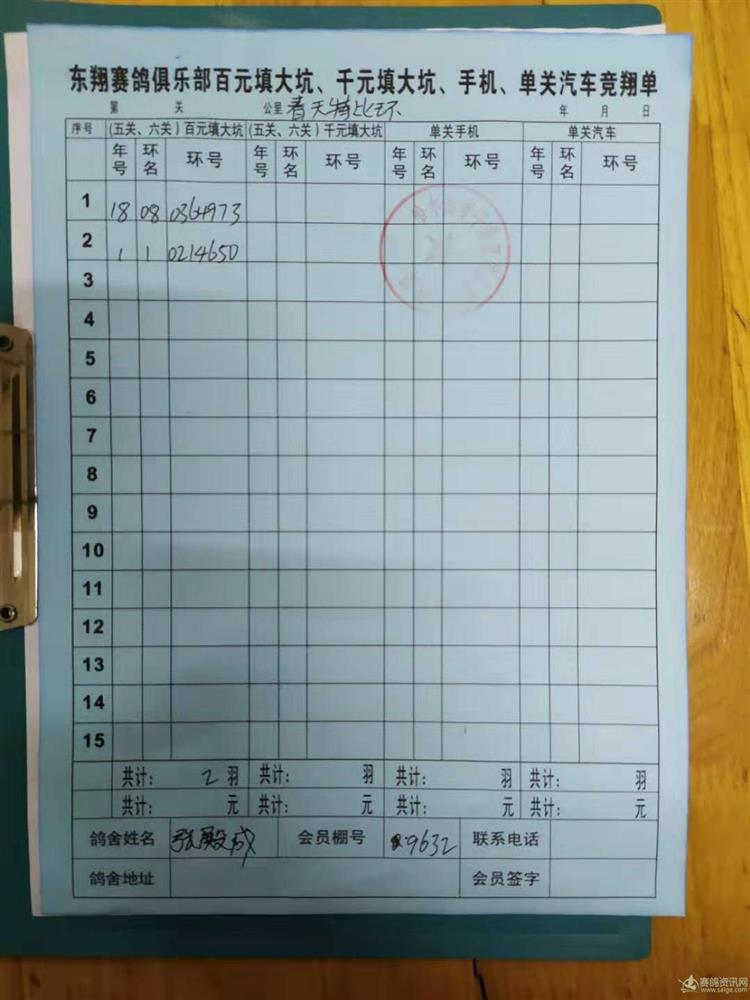 东翔赛鸽俱乐部百元填大坑、千元填大坑、手机、单关汽车竞翔单
第 关 公里 春天特比环 年 月 日
序号 (五关、六关)百元填大坑 (五关、六关)千元填大坑 单关手机 单关汽车
年号 环名 环号 年号 环名 环号 年号 环名 环号 年号 环名 环号
1 18 08 0364973
2 1 1 0214650
3
4
5
6
7
8
9
10
11
12
13
14
15
共计: 2 羽 共计: 羽 共计: 羽 共计: 羽
共计: 元 共计: 元 共计: 元 共计: 元
鸽舍姓名 张殿成 会员棚号 9632 联系电话
鸽舍地址 会员签字
赛鸽资讯网
www.saige.com